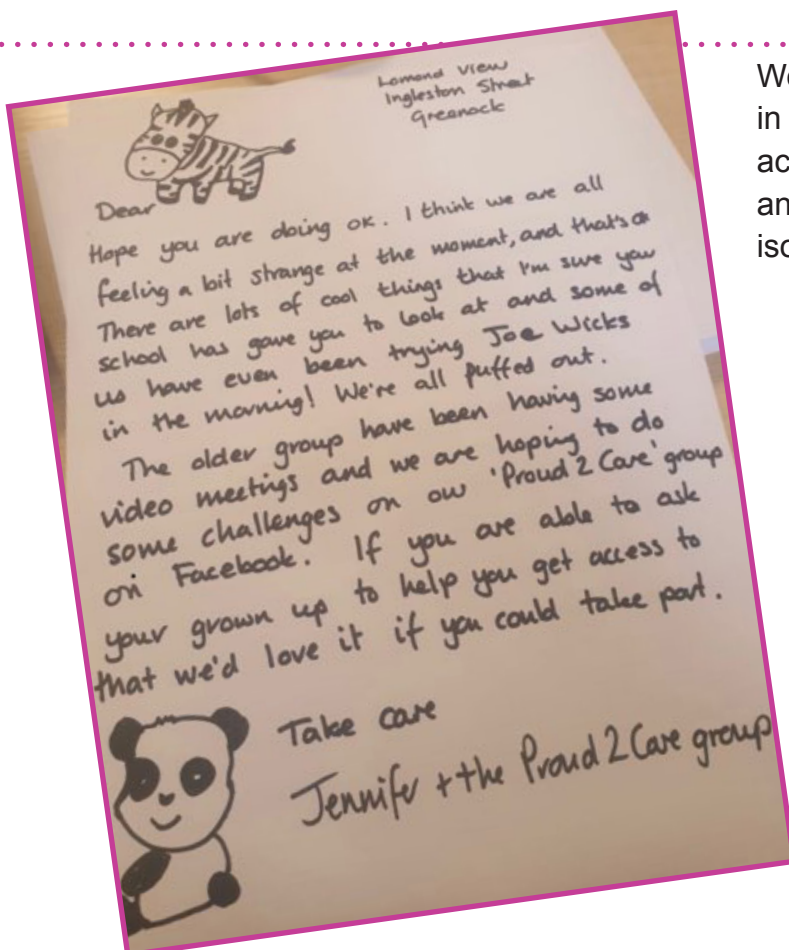 Lomond View
Ingleston Street
Greenock
Dear
Hope you are doing ok. I think we are all
feeling a bit strange at the moment, and that's ok
There are lots of cool things that I'm sure your
school has gave you to look at and some of
us have even been trying Joe Wicks
in the morning! We're all puffed out.
The older group have been having some
video meetings and we are hoping to do
some challenges on our 'Proud 2 Care' group
on Facebook. If you are able to ask
your grown up to help you get access to
that we'd love it if you could take part.
Take care
Jennifer + the Proud 2 Care group
in